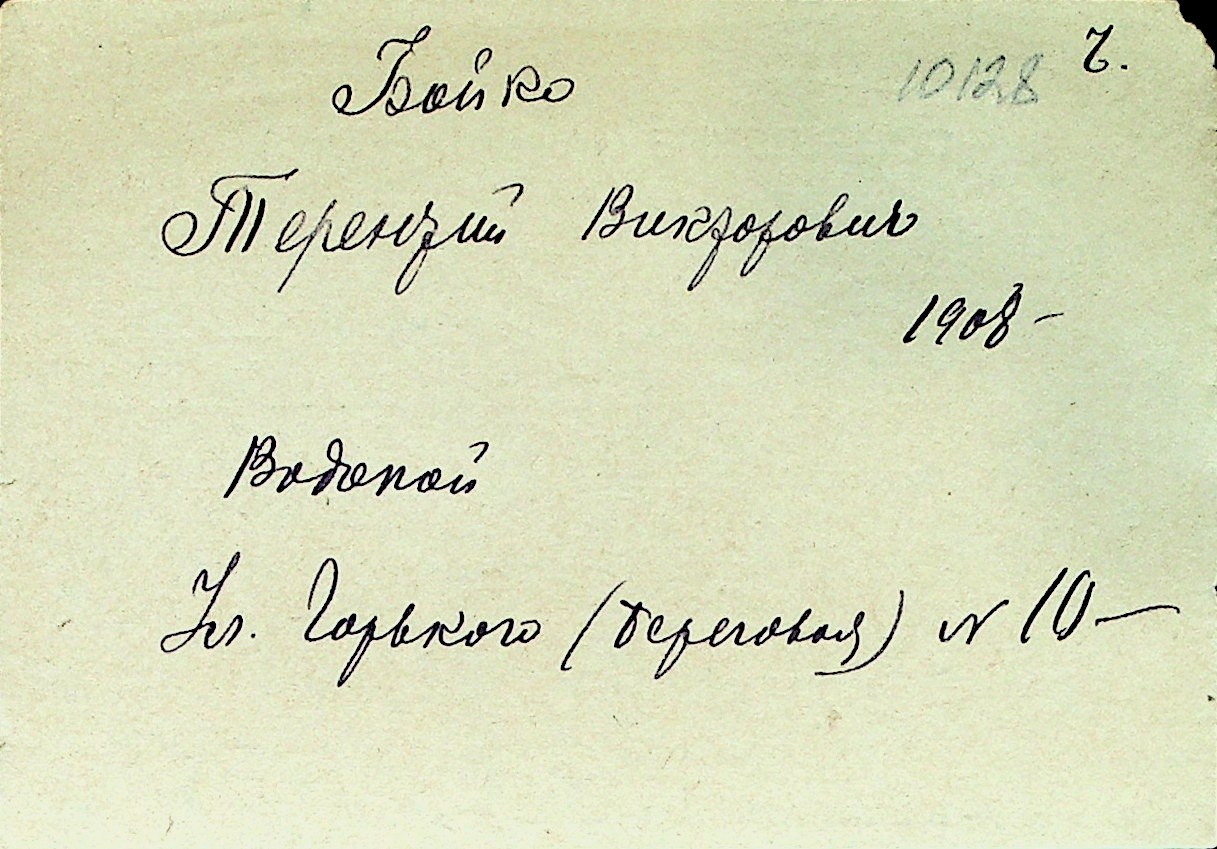 Бойко 10128 Б.
Терентий Викторович
1908-
Водопой
Ул. Горького (береговая) № 10-